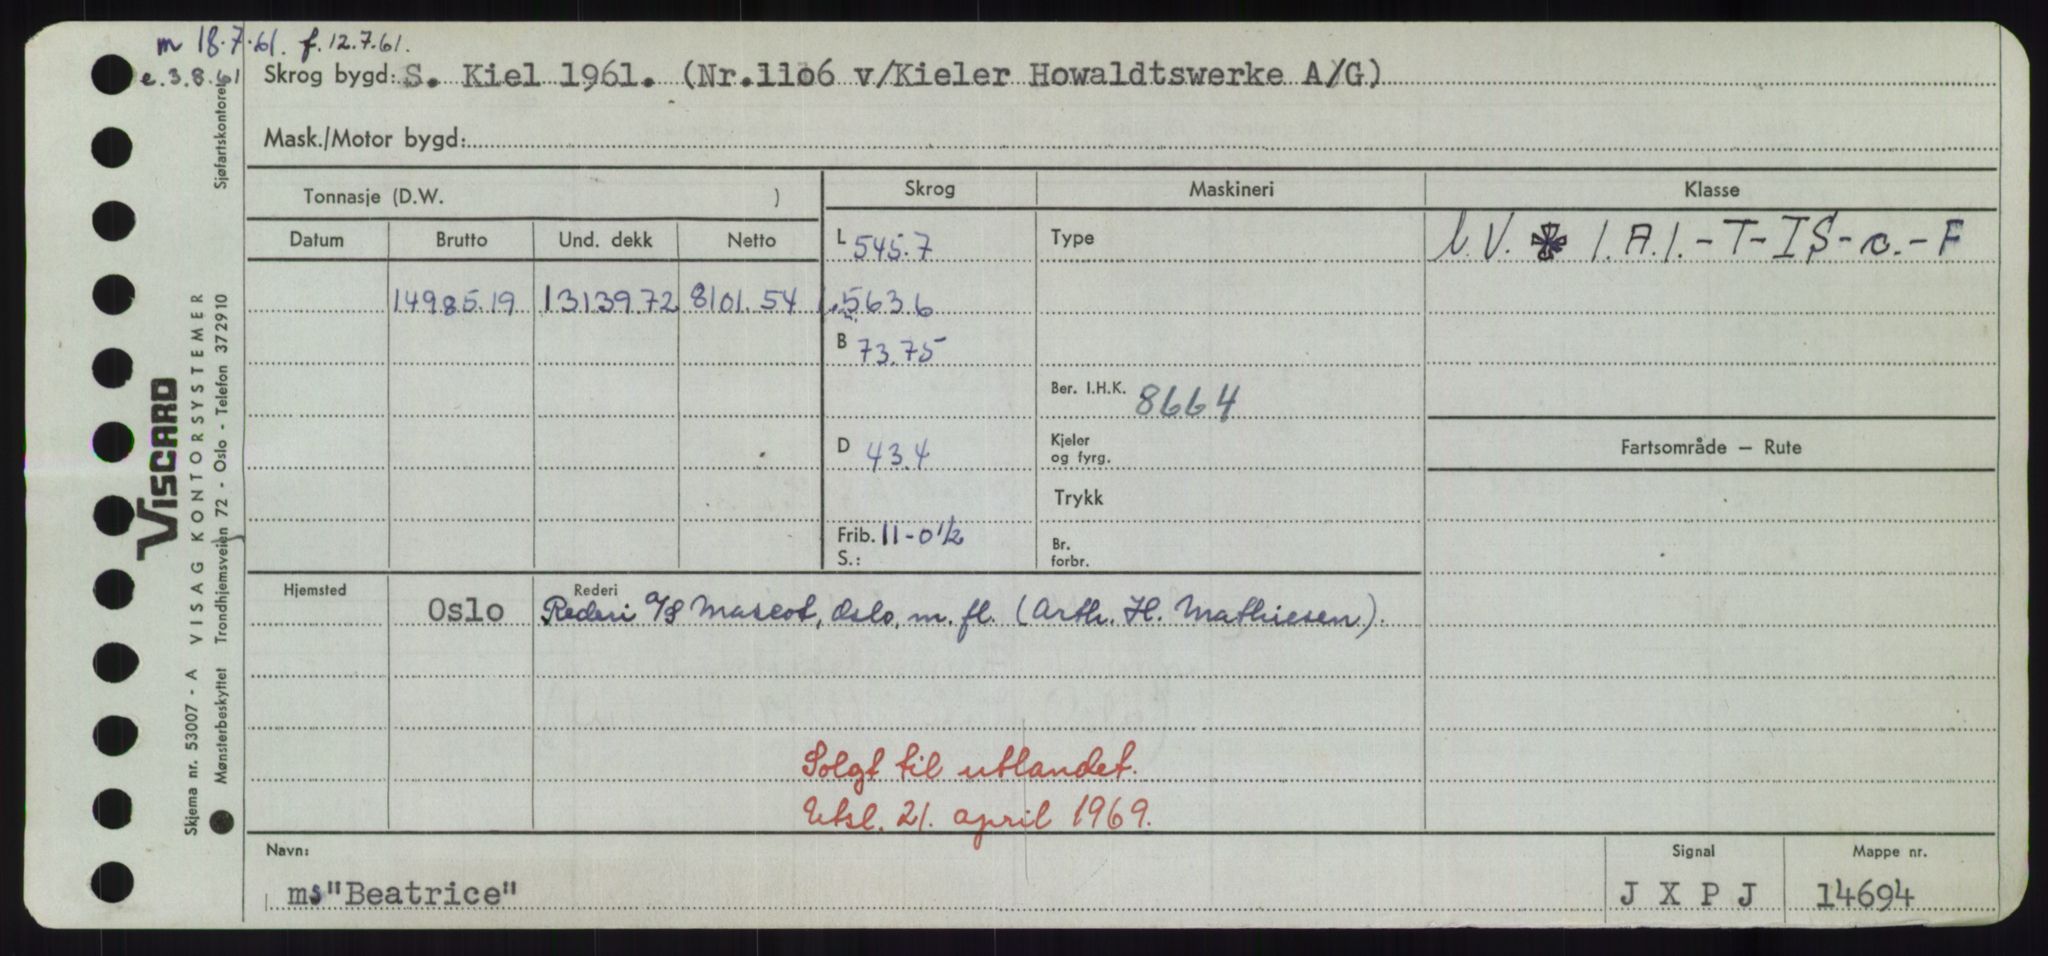 m 18.7.61. f. 12.7.61.
e. 3.8.61
Skrog bygd: S. Kiel 1961. (Nr.1106 v/Kieler Howaldtswerke A/G)
Mask./Motor bygd:
Tonnasje (D.W. )
Skrog
Maskineri
Klasse
Datum
Brutto
Und. dekk
Netto
L 545.7
Type
1.A.1.-T-IS-c.-F
14985.19 13139.72 8101.54
5636
B 73.75
Ber. I.H.K. 8664
D 43.4
Kjeler
og fyrg.
Fartsområde — Rute
Trykk
Frib. 11-0½
S.:
Br.
forbr.
Hjemsted
Rederi
Oslo
Rederi A/S Mascot, Oslo, m. fl. (Arth. H. Mathiesen).
Solgt til utlandet.
Utsl. 21. april 1969.
Navn:
Signal
Mappe nr.
ms "Beatrice"
J X P J
14694
Sjøfartskontoret
VISCARD
VISAG KONTORSYSTEMER
Skjema nr. 53007 - A
Mønsterbeskyttet Trondhjemsveien 72 - Oslo - Telefon 372910